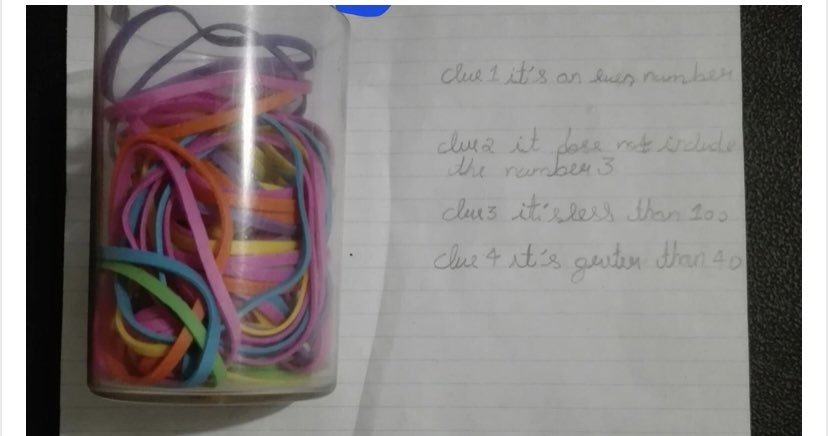 clue 1 it's an even number
clue 2 it dose not include
the number 3
clue 3 it's less than 100
clue 4 it's greter than 40